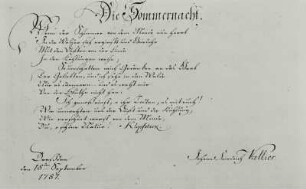 Die Sommernacht.
Wenn der Schimmer von dem Monde nun herab
In die Wälder sich ergießt, und Gerüche
Mit den Düften von der Linde
In den Kühlungen wehn;
So umschatten mich Gedanken an das Grab
Der Geliebten, und ich seh in dem Walde
Nur es dämmern, und es weht mir
Von der Blüthe nicht her.
Ich genoß einst, o ihr Todten, es mit euch!
Wie umwehten uns der Duft und die Kühlung,
Wie verschönt warst von dem Monde,
Du, o schöne Natur! Klopstock
Dresden
den 18ten September
1787.
Johann